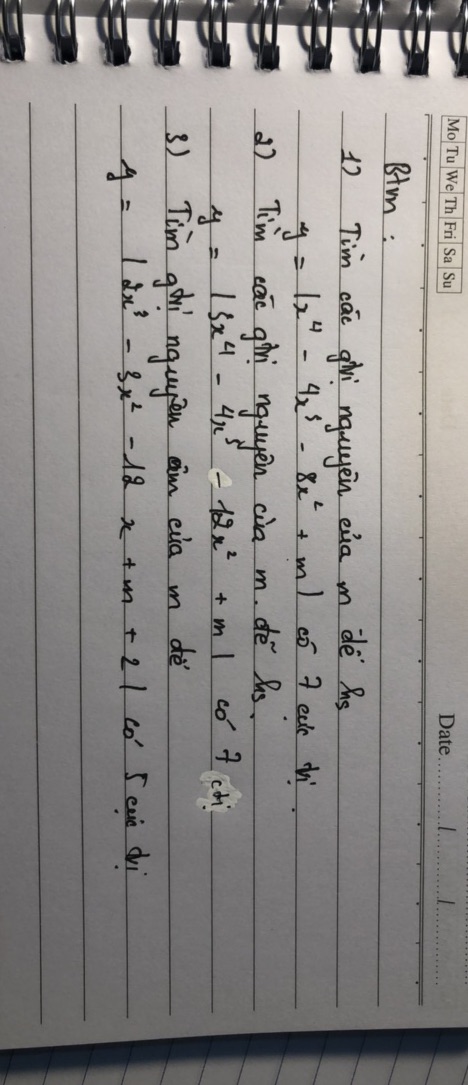 Mo Tu We Th Fri Sa Su
Date........../........../..........
Btm :
1) Tìm các gtrị nguyên của m để hs
y = |x⁴ - 4x³ - 8x² + m| có 7 cực trị.
2) Tìm các gtrị nguyên của m để hs.
y = |3x⁴ - 4x³ - 12x² + m| có 7 ctrị
3) Tìm gtrị nguyên âm của m để
y = |2x³ - 3x² - 12x + m + 2| có 5 cực trị